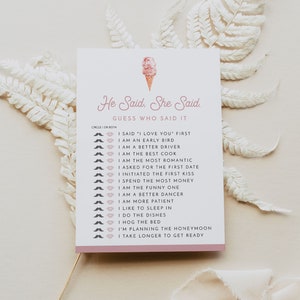 He Said, She Said.
GUESS WHO SAID IT
CIRCLE OR BOTH
I SAID "I LOVE YOU" FIRST
I AM AN EARLY BIRD
I AM A BETTER DRIVER
I AM THE BEST COOK
I AM THE MOST ROMANTIC
I ASKED FOR THE FIRST DATE
I INITIATED THE FIRST KISS
I SPEND THE MOST MONEY
I AM THE FUNNY ONE
I AM A BETTER DANCER
I AM MORE PATIENT
I LIKE TO SLEEP IN
I DO THE DISHES
I HOG THE BED
I'M PLANNING THE HONEYMOON
I TAKE LONGER TO GET READY